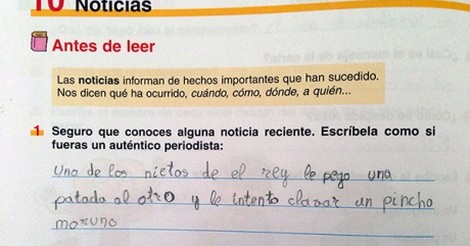 10 Noticias
Antes de leer
Las noticias informan de hechos importantes que han sucedido.
Nos dicen qué ha ocurrido, cuándo, cómo, dónde, a quién...
1 Seguro que conoces alguna noticia reciente. Escríbela como si
fueras un auténtico periodista:
Uno de los nietos de el rey le pego una
patada al otro y le intento clavar un pincho
moruno